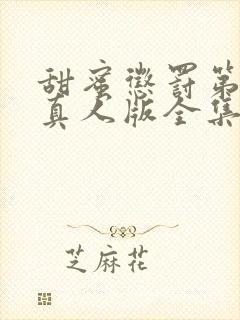 甜蜜惩罚第
真人版全集
芝麻花